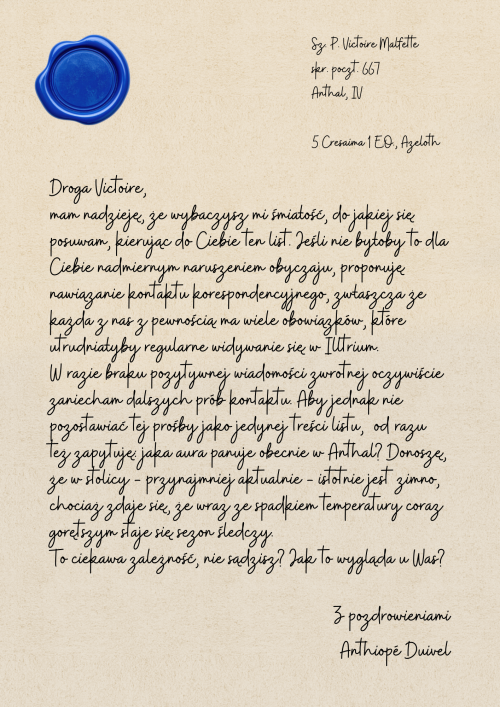 Sz. P. Victoire Malfette
skr. poczt. 667
Anthal, IV
5 Cresaima 1 EO., Azeloth
Droga Victoire,
mam nadzieję, że wybaczysz mi śmiałość, do jakiej się
posuwam, kierując do Ciebie ten list. Jeśli nie byłoby to dla
Ciebie nadmiernym naruszeniem obyczaju, proponuję
nawiązanie kontaktu korespondencyjnego, zwłaszcza że
każda z nas z pewnością ma wiele obowiązków, które
utrudniałyby regularne widywanie się w Illtrium.
W razie braku pozytywnej wiadomości zwrotnej oczywiście
zaniecham dalszych prób kontaktu. Aby jednak nie
pozostawiać tej prośby jako jedynej treści listu, od razu
też zapytuję: jaka aura panuje obecnie w Anthal? Donoszę,
że w stolicy - przynajmniej aktualnie - istotnie jest zimno,
chociaż zdaje się, że wraz ze spadkiem temperatury coraz
gorętszym staje się sezon śledczy.
To ciekawa zależność, nie sądzisz? Jak to wygląda u Was?
Z pozdrowieniami
Anthiopé Duivel